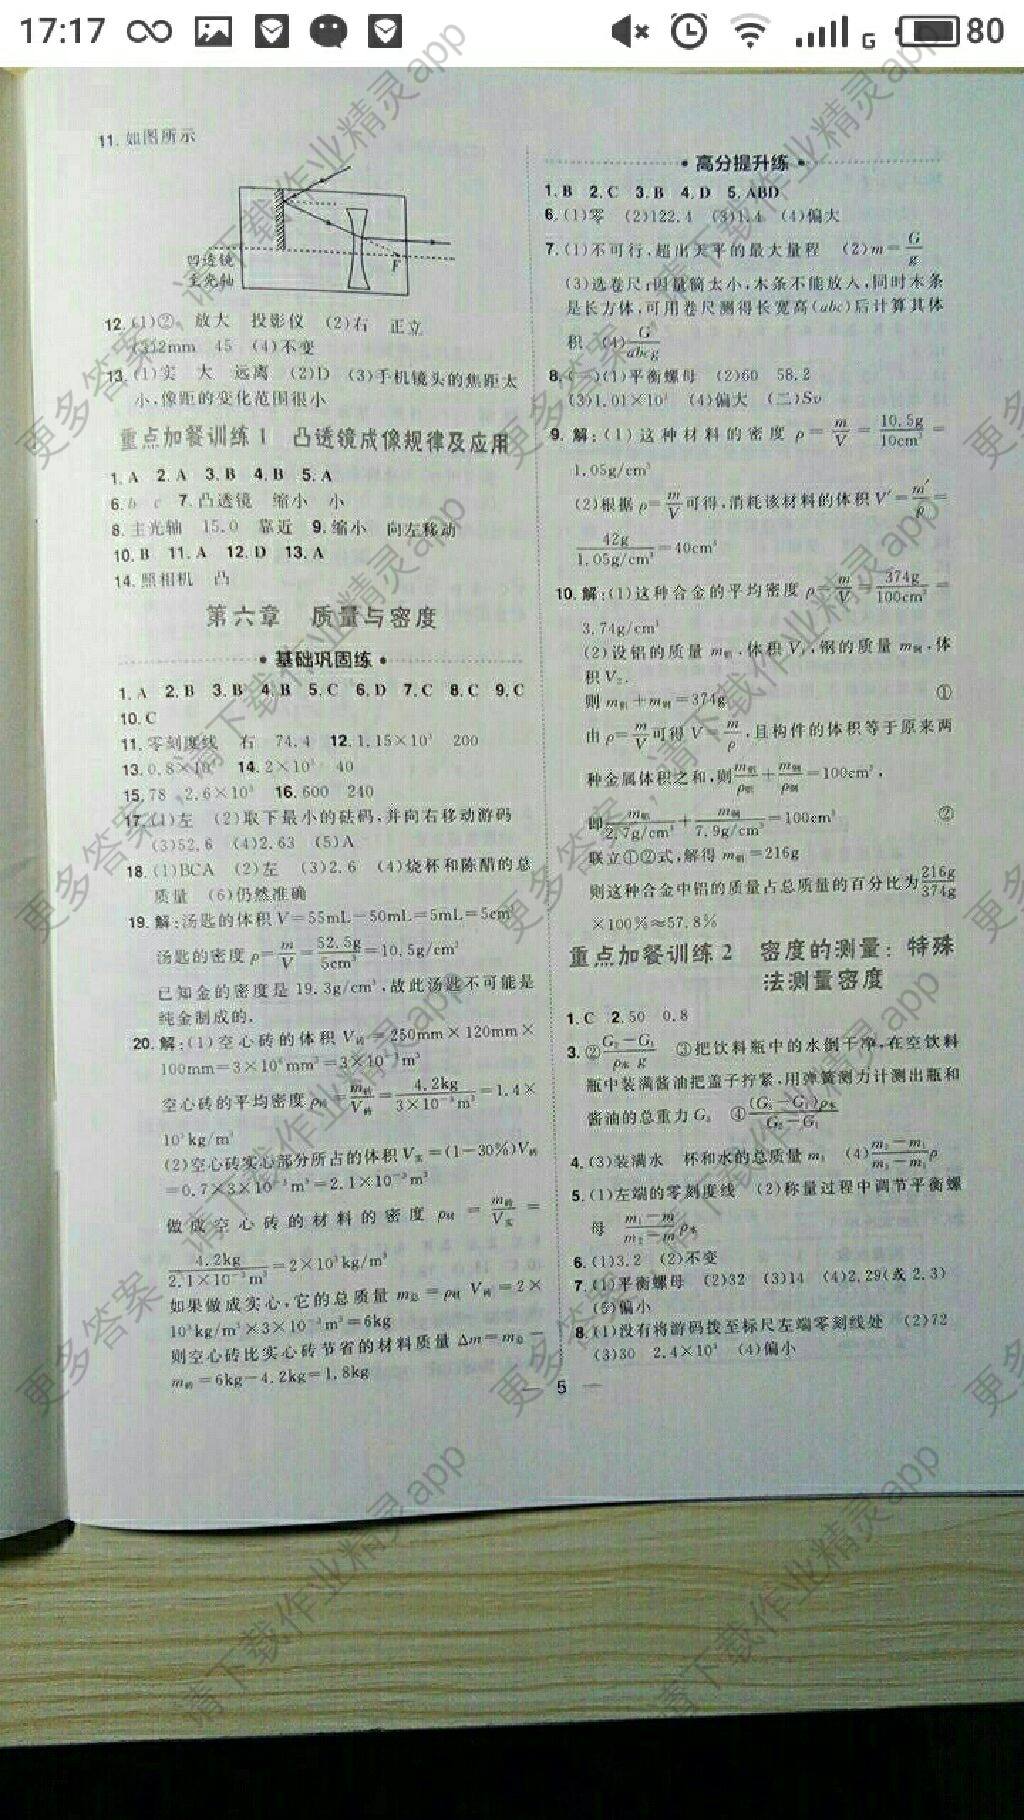 17:17
G 80
11. 如图所示
凹透镜
主光轴
F
12. (1)② 放大 投影仪 (2)右 正立
(3)2mm 45 (4)不变
13. (1)实 大 远离 (2)D (3)手机镜头的焦距太
小,像距的变化范围很小
重点加餐训练1 凸透镜成像规律及应用
1. A 2. A 3. B 4. B 5. A
6. b c 7. 凸透镜 缩小 小
8. 主光轴 15.0 靠近 9. 缩小 向左移动
10. B 11. A 12. D 13. A
14. 照相机 凸
第六章 质量与密度
• 基础巩固练 •
1. A 2. B 3. B 4. B 5. C 6. D 7. C 8. C 9. C
10. C
11. 零刻度线 右 74.4 12. 1.15×10³ 200
13. 0.8×10³ 14. 2×10³ 40
15. 78 2.6×10³ 16. 600 240
17. (1)左 (2)取下最小的砝码,并向右移动游码
(3)52.6 (4)2.63 (5)A
18. (1)BCA (2)左 (3)2.6 (4)烧杯和陈醋的总
质量 (6)仍然准确
19. 解:汤匙的体积V=55mL-50mL=5mL=5cm³
汤匙的密度ρ=m/V=52.5g/5cm³=10.5g/cm³
已知金的密度是19.3g/cm³,故此汤匙不可能是
纯金制成的.
20. 解:(1)空心砖的体积V砖=250mm×120mm×
100mm=3×10⁶mm³=3×10⁻³m³
空心砖的平均密度ρ砖=m砖/V砖=4.2kg/3×10⁻³m³=1.4×
10³kg/m³
(2)空心砖实心部分所占的体积V实=(1-30%)V砖
=0.7×3×10⁻³m³=2.1×10⁻³m³
做成空心砖的材料的密度ρ材=m砖/V实=
4.2kg/2.1×10⁻³m³=2×10³kg/m³
如果做成实心,它的总质量m总=ρ材V砖=2×
10³kg/m³×3×10⁻³m³=6kg
则空心砖比实心砖节省的材料质量Δm=m总-
m砖=6kg-4.2kg=1.8kg
• 高分提升练 •
1. B 2. C 3. B 4. D 5. ABD
6. (1)零 (2)122.4 (3)1.4 (4)偏大
7. (1)不可行,超出天平的最大量程 (2)m=G/g
(3)选卷尺;因量筒太小,木条不能放入,同时木条
是长方体,可用卷尺测得长宽高(abc)后计算其体
积 (4)G/abcg
8. (一)(1)平衡螺母 (2)60 58.2
(3)1.01×10³ (4)偏大 (二)Sv
9. 解:(1)这种材料的密度ρ=m/V=10.5g/10cm³=
1.05g/cm³
(2)根据ρ=m/V可得,消耗该材料的体积V′=m′/ρ=
42g/1.05g/cm³=40cm³
10. 解:(1)这种合金的平均密度ρ=m/V=374g/100cm³=
3.74g/cm³
(2)设铝的质量m铝,体积V₁,钢的质量m钢,体
积V₂.
则m铝+m钢=374g ①
由ρ=m/V可得V=m/ρ,且构件的体积等于原来两
种金属体积之和,则m铝/ρ铝+m钢/ρ钢=100cm³,
即m铝/2.7g/cm³+m钢/7.9g/cm³=100cm³ ②
联立①②式,解得m铝=216g
则这种合金中铝的质量占总质量的百分比为216g/374g
×100%≈57.8%
重点加餐训练2 密度的测量:特殊
法测量密度
1. C 2. 50 0.8
3. ②G₂-G₁/ρ水g ③把饮料瓶中的水倒干净,在空饮料
瓶中装满酱油把盖子拧紧,用弹簧测力计测出瓶和
酱油的总重力G₃ ④(G₃-G₁)ρ水/G₂-G₁
4. (3)装满水 杯和水的总质量m₃ (4)m₂-m₁/m₃-m₁ρ
5. (1)左端的零刻度线 (2)称量过程中调节平衡螺
母 m₁-m/m₂-mρ水
6. (1)3.2 (2)不变
7. (1)平衡螺母 (2)32 (3)14 (4)2.29(或2.3)
(5)偏小
8. (1)没有将游码拨至标尺左端零刻线处 (2)72
(3)30 2.4×10³ (4)偏小
— 5 —
更多答案,请下载作业精灵app